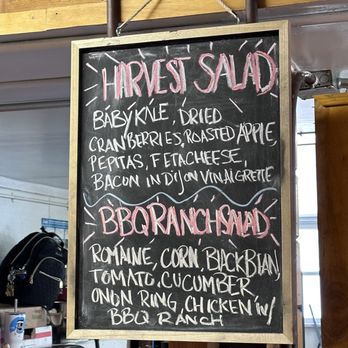 HARVEST SALAD
BABY KALE, DRIED
CRANBERRIES, ROASTED APPLE,
PEPITAS, FETACHEESE,
BACON IN DIJON VINAIGRETTE
BBQ RANCH SALAD
ROMAINE, CORN, BLACK BEAN,
TOMATO, CUCUMBER
ONON RING, CHICKEN W/
BBQ RANCH